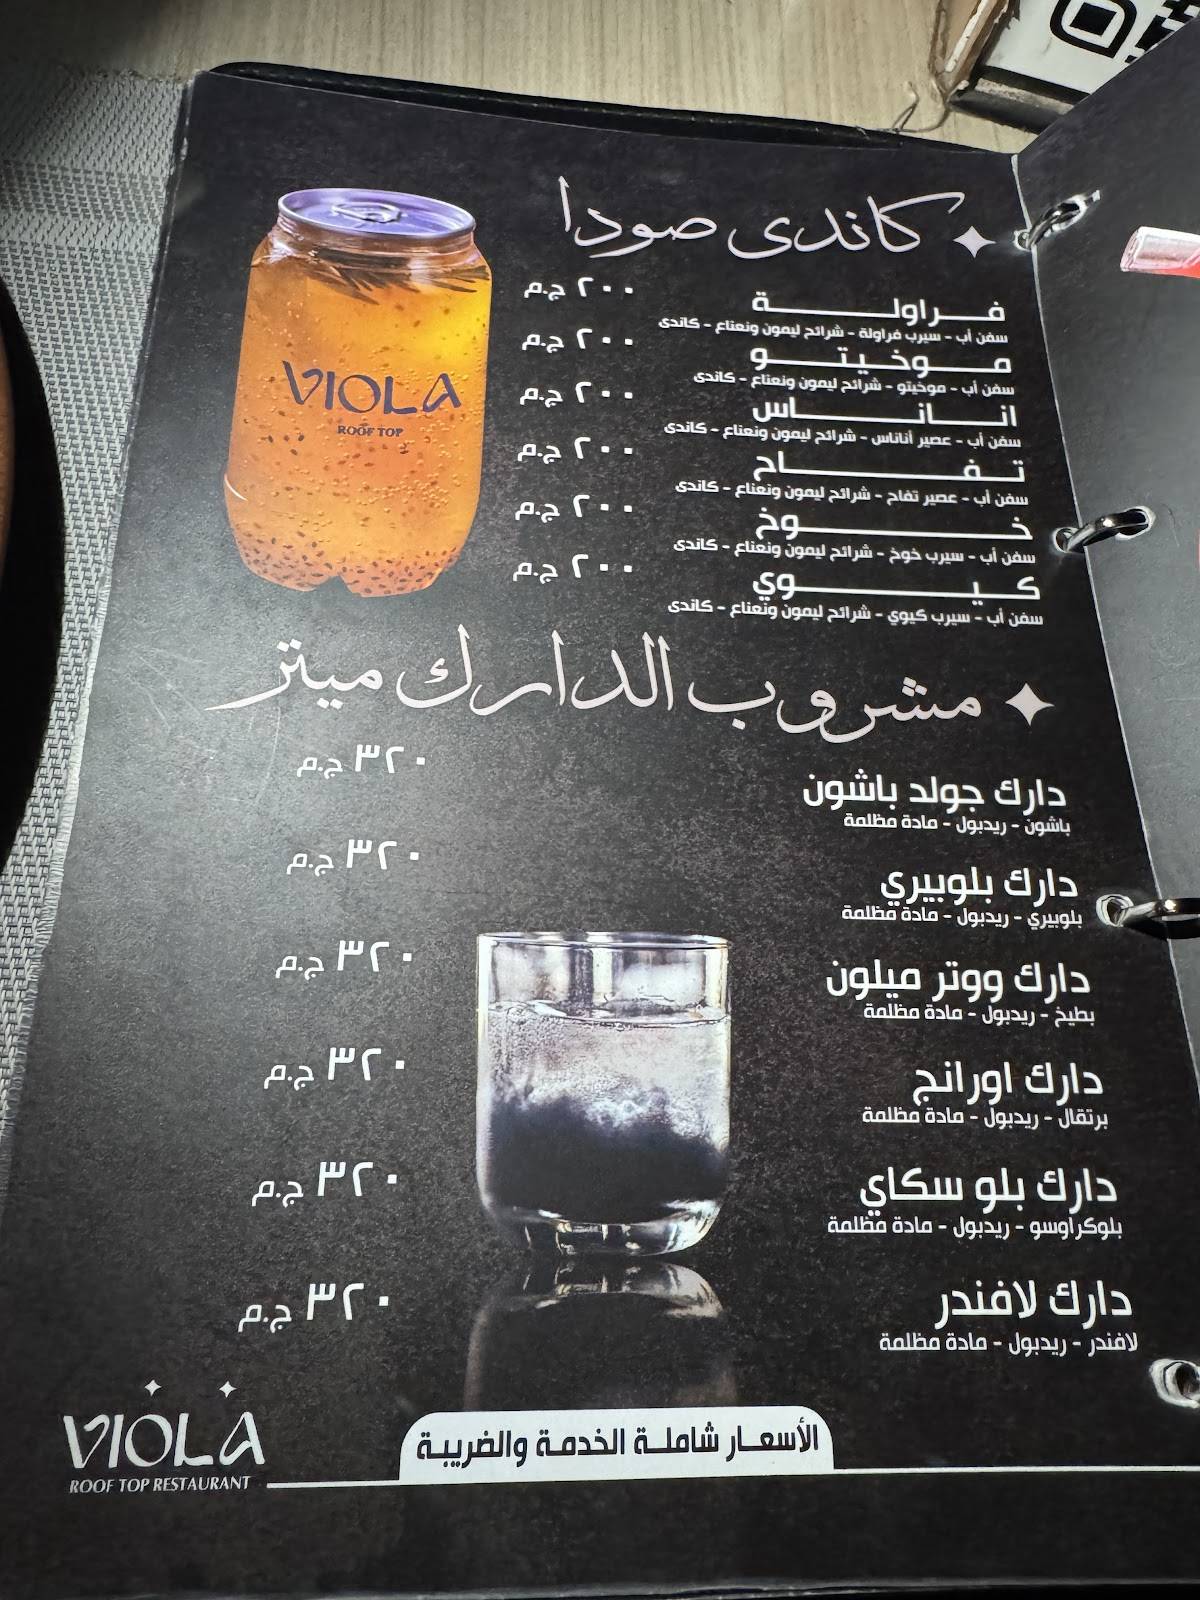 كاندى صودا
فراولة ٢٠٠ ج.م
سفن أب - سيرب فراولة - شرائح ليمون ونعناع - كاندى
موخيتو ٢٠٠ ج.م
سفن أب - موخيتو - شرائح ليمون ونعناع - كاندى
اناناس ٢٠٠ ج.م
سفن أب - عصير أناناس - شرائح ليمون ونعناع - كاندى
تفاح ٢٠٠ ج.م
سفن أب - عصير تفاح - شرائح ليمون ونعناع - كاندى
خوخ ٢٠٠ ج.م
سفن أب - سيرب خوخ - شرائح ليمون ونعناع - كاندى
كيوي ٢٠٠ ج.م
سفن أب - سيرب كيوي - شرائح ليمون ونعناع - كاندى
VIOLA
ROOF TOP
مشروب الدارك ميتر
دارك جولد باشون ٣٢٠ ج.م
باشون - ريدبول - مادة مظلمة
دارك بلوبيري ٣٢٠ ج.م
بلوبيري - ريدبول - مادة مظلمة
دارك ووتر ميلون ٣٢٠ ج.م
بطيخ - ريدبول - مادة مظلمة
دارك اورانج ٣٢٠ ج.م
برتقال - ريدبول - مادة مظلمة
دارك بلو سكاي ٣٢٠ ج.م
بلوكراوسو - ريدبول - مادة مظلمة
دارك لافندر ٣٢٠ ج.م
لافندر - ريدبول - مادة مظلمة
الأسعار شاملة الخدمة والضريبة
VIOLA
ROOF TOP RESTAURANT